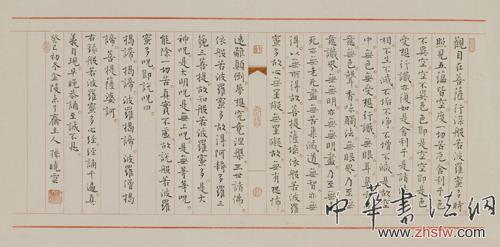 觀自在菩薩行深般若波羅蜜多時
照見五蘊皆空度一切苦厄舍利子色
不異空空不異色色即是空空即是色
受想行識亦復如是舍利子是諸法空
相不生不滅不垢不淨不增不減是故空
中無色無受想行識無眼耳鼻舌身
意無色聲香味觸法無眼界乃至無
意識界無無明亦無無明盡乃至無老
死亦無老死盡無苦集滅道無智亦無
得以無所得故菩提薩埵依般若波羅
蜜多故心無罣礙無罣礙故無有恐怖
遠離顛倒夢想究竟涅槃三世諸佛
依般若波羅蜜多故得阿耨多羅三
藐三菩提故知般若波羅蜜多是大
神咒是大明咒是無上咒是無等等咒
能除一切苦真實不虛故說般若波羅
蜜多咒即說咒曰
揭諦揭諦 波羅揭諦 波羅僧揭
諦 菩提薩婆訶
右錄般若波羅蜜多心經經誦千遍真
義自現早晚恭誦至誠不息
癸巳初冬金陵齋主人 孫曉雲
中華書法網
www.zhsfw.com